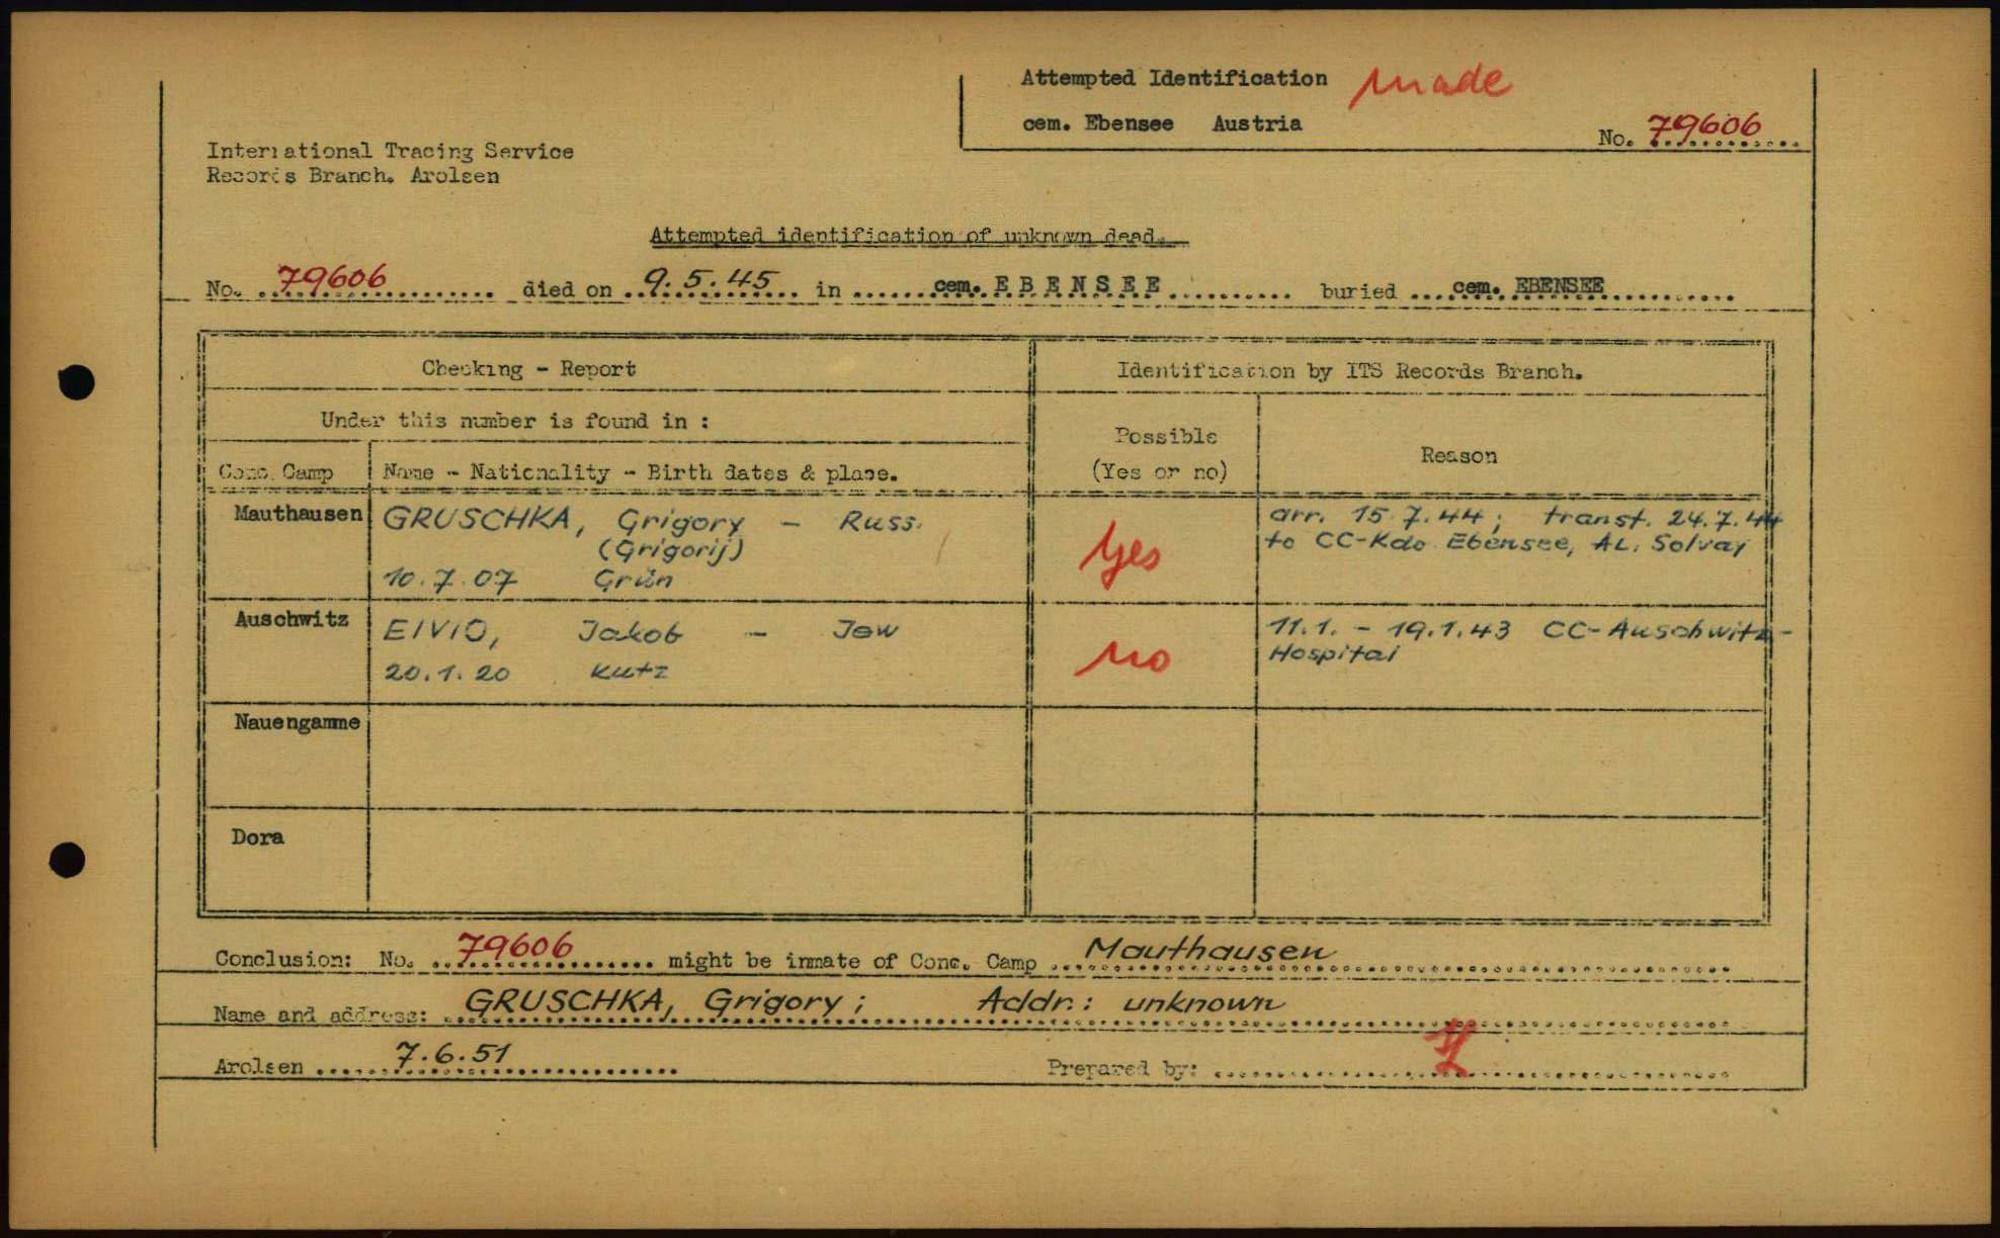 Attempted Identification made
cem. Ebensee Austria
No. 79606
International Tracing Service
Records Branch. Arolsen
Attempted identification of unknown dead.
No. 79606 died on 9.5.45 in cem. EBENSEE buried cem. EBENSEE
Checking - Report
Identification by ITS Records Branch.
Under this number is found in :
Possible
(Yes or no)
Reason
Conc. Camp
Name - Nationality - Birth dates & place.
Mauthausen
GRUSCHKA, Grigory - Russ.
(Grigorij)
10.7.07 Grün
Yes
arr. 15.7.44; transf. 24.7.44
to CC-Kdo. Ebensee, AL. Solvay
Auschwitz
EIVIO, Jakob - Jew
20.1.20 Kutz
no
11.1. - 19.1.43 CC-Auschwitz-
Hospital
Nauengamme
Dora
Conclusion: No. 79606 might be inmate of Conc. Camp Mauthausen
Name and address: GRUSCHKA, Grigory; Addr.: unknown
Arolsen 7.6.51
Prepared by: